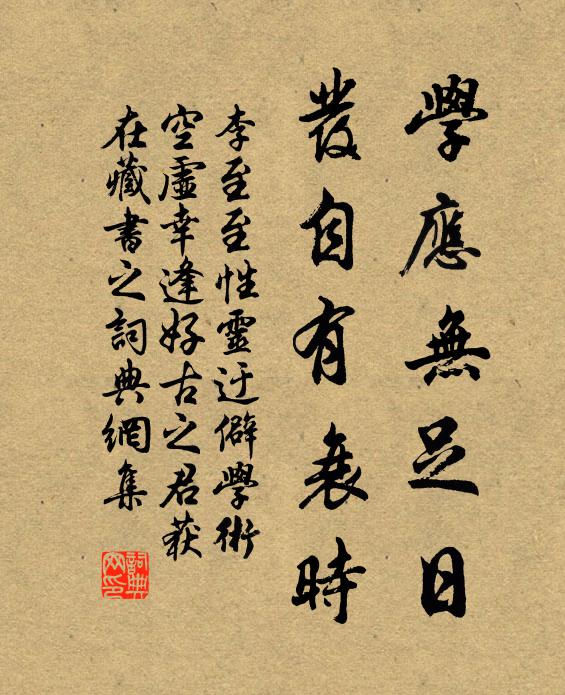 學應無足日
發自有衰時
李至至性靈迂僻學術
空虛幸逢好古之君获
在藏書之詞典網集
詞典
网印